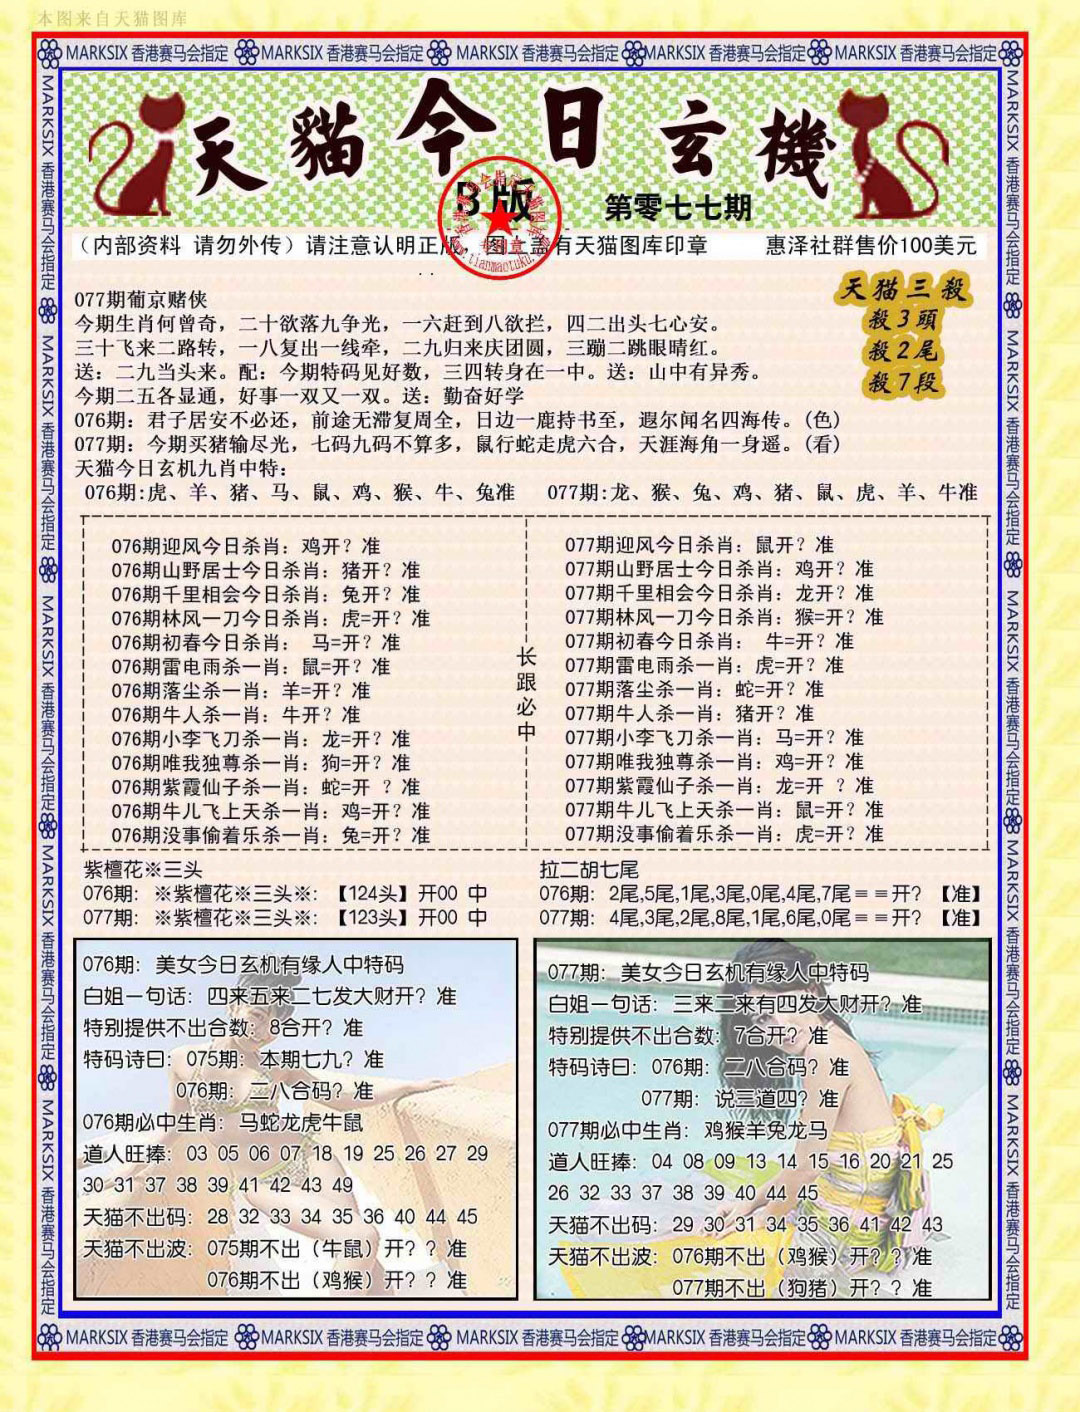 本图来自天猫图库
MARKSIX 香港赛马会指定 MARKSIX 香港赛马会指定 MARKSIX 香港赛马会指定 MARKSIX 香港赛马会指定 MARKSIX 香港赛马会指定
MARKSIX 香港赛马会指定 MARKSIX 香港赛马会指定 MARKSIX 香港赛马会指定 MARKSIX 香港赛马会指定 MARKSIX 香港赛马会指定
天貓今日玄機
B版
第零七七期
（内部资料 请勿外传）请注意认明正版，图上盖有天猫图库印章 惠泽社群售价100美元
天猫三殺
殺3頭
殺2尾
殺7段
077期葡京赌侠
今期生肖何曾奇，二十欲落九争光，一六赶到八欲拦，四二出头七心安。
三十飞来二路转，一八复出一线牵，二九归来庆团圆，三蹦二跳眼晴红。
送：二九当头来。配：今期特码见好数，三四转身在一中。送：山中有异秀。
今期二五各显通，好事一双又一双。送：勤奋好学
076期：君子居安不必还，前途无滞复周全，日边一鹿持书至，遐尔闻名四海传。(色)
077期：今期买猪输尽光，七码九码不算多，鼠行蛇走虎六合，天涯海角一身遥。(看)
天猫今日玄机九肖中特：
076期:虎、羊、猪、马、鼠、鸡、猴、牛、兔准 077期:龙、猴、兔、鸡、猪、鼠、虎、羊、牛准
076期迎风今日杀肖：鸡开？准
076期山野居士今日杀肖：猪开？准
076期千里相会今日杀肖：兔开？准
076期林风一刀今日杀肖：虎=开？准
076期初春今日杀肖： 马=开？准
076期雷电雨杀一肖：鼠=开？准
076期落尘杀一肖：羊=开？准
076期牛人杀一肖：牛开？准
076期小李飞刀杀一肖：龙=开？准
076期唯我独尊杀一肖：狗=开？准
076期紫霞仙子杀一肖：蛇=开 ？准
076期牛儿飞上天杀一肖：鸡=开？准
076期没事偷着乐杀一肖：兔=开？准
长跟必中
077期迎风今日杀肖：鼠开？准
077期山野居士今日杀肖：鸡开？准
077期千里相会今日杀肖：龙开？准
077期林风一刀今日杀肖：猴=开？准
077期初春今日杀肖： 牛=开？准
077期雷电雨杀一肖：虎=开？准
077期落尘杀一肖：蛇=开？准
077期牛人杀一肖：猪开？准
077期小李飞刀杀一肖：马=开？准
077期唯我独尊杀一肖：鸡=开？准
077期紫霞仙子杀一肖：龙=开 ？准
077期牛儿飞上天杀一肖：鼠=开？准
077期没事偷着乐杀一肖：虎=开？准
紫檀花※三头
076期：※紫檀花※三头※：【124头】开00 中
077期：※紫檀花※三头※：【123头】开00 中
拉二胡七尾
076期：2尾,5尾,1尾,3尾,0尾,4尾,7尾＝＝开？【准】
077期：4尾,3尾,2尾,8尾,1尾,6尾,0尾＝＝开？【准】
076期：美女今日玄机有缘人中特码
白姐一句话：四来五来二七发大财开？准
特别提供不出合数：8合开？准
特码诗曰：075期：本期七九？准
076期：二八合码？准
076期必中生肖：马蛇龙虎牛鼠
道人旺捧：03 05 06 07 18 19 25 26 27 29
30 31 37 38 39 41 42 43 49
天猫不出码：28 32 33 34 35 36 40 44 45
天猫不出波：075期不出（牛鼠）开？？准
076期不出（鸡猴）开？？准
077期：美女今日玄机有缘人中特码
白姐一句话：三来二来有四发大财开？准
特别提供不出合数：7合开？准
特码诗曰：076期：二八合码？准
077期：说三道四？准
077期必中生肖：鸡猴羊兔龙马
道人旺捧：04 08 09 13 14 15 16 20 21 25
26 32 33 37 38 39 40 44 45
天猫不出码：29 30 31 34 35 36 41 42 43
天猫不出波：076期不出（鸡猴）开？？准
077期不出（狗猪）开？？准
MARKSIX 香港赛马会指定 MARKSIX 香港赛马会指定 MARKSIX 香港赛马会指定 MARKSIX 香港赛马会指定 MARKSIX 香港赛马会指定
MARKSIX 香港赛马会指定 MARKSIX 香港赛马会指定 MARKSIX 香港赛马会指定 MARKSIX 香港赛马会指定 MARKSIX 香港赛马会指定